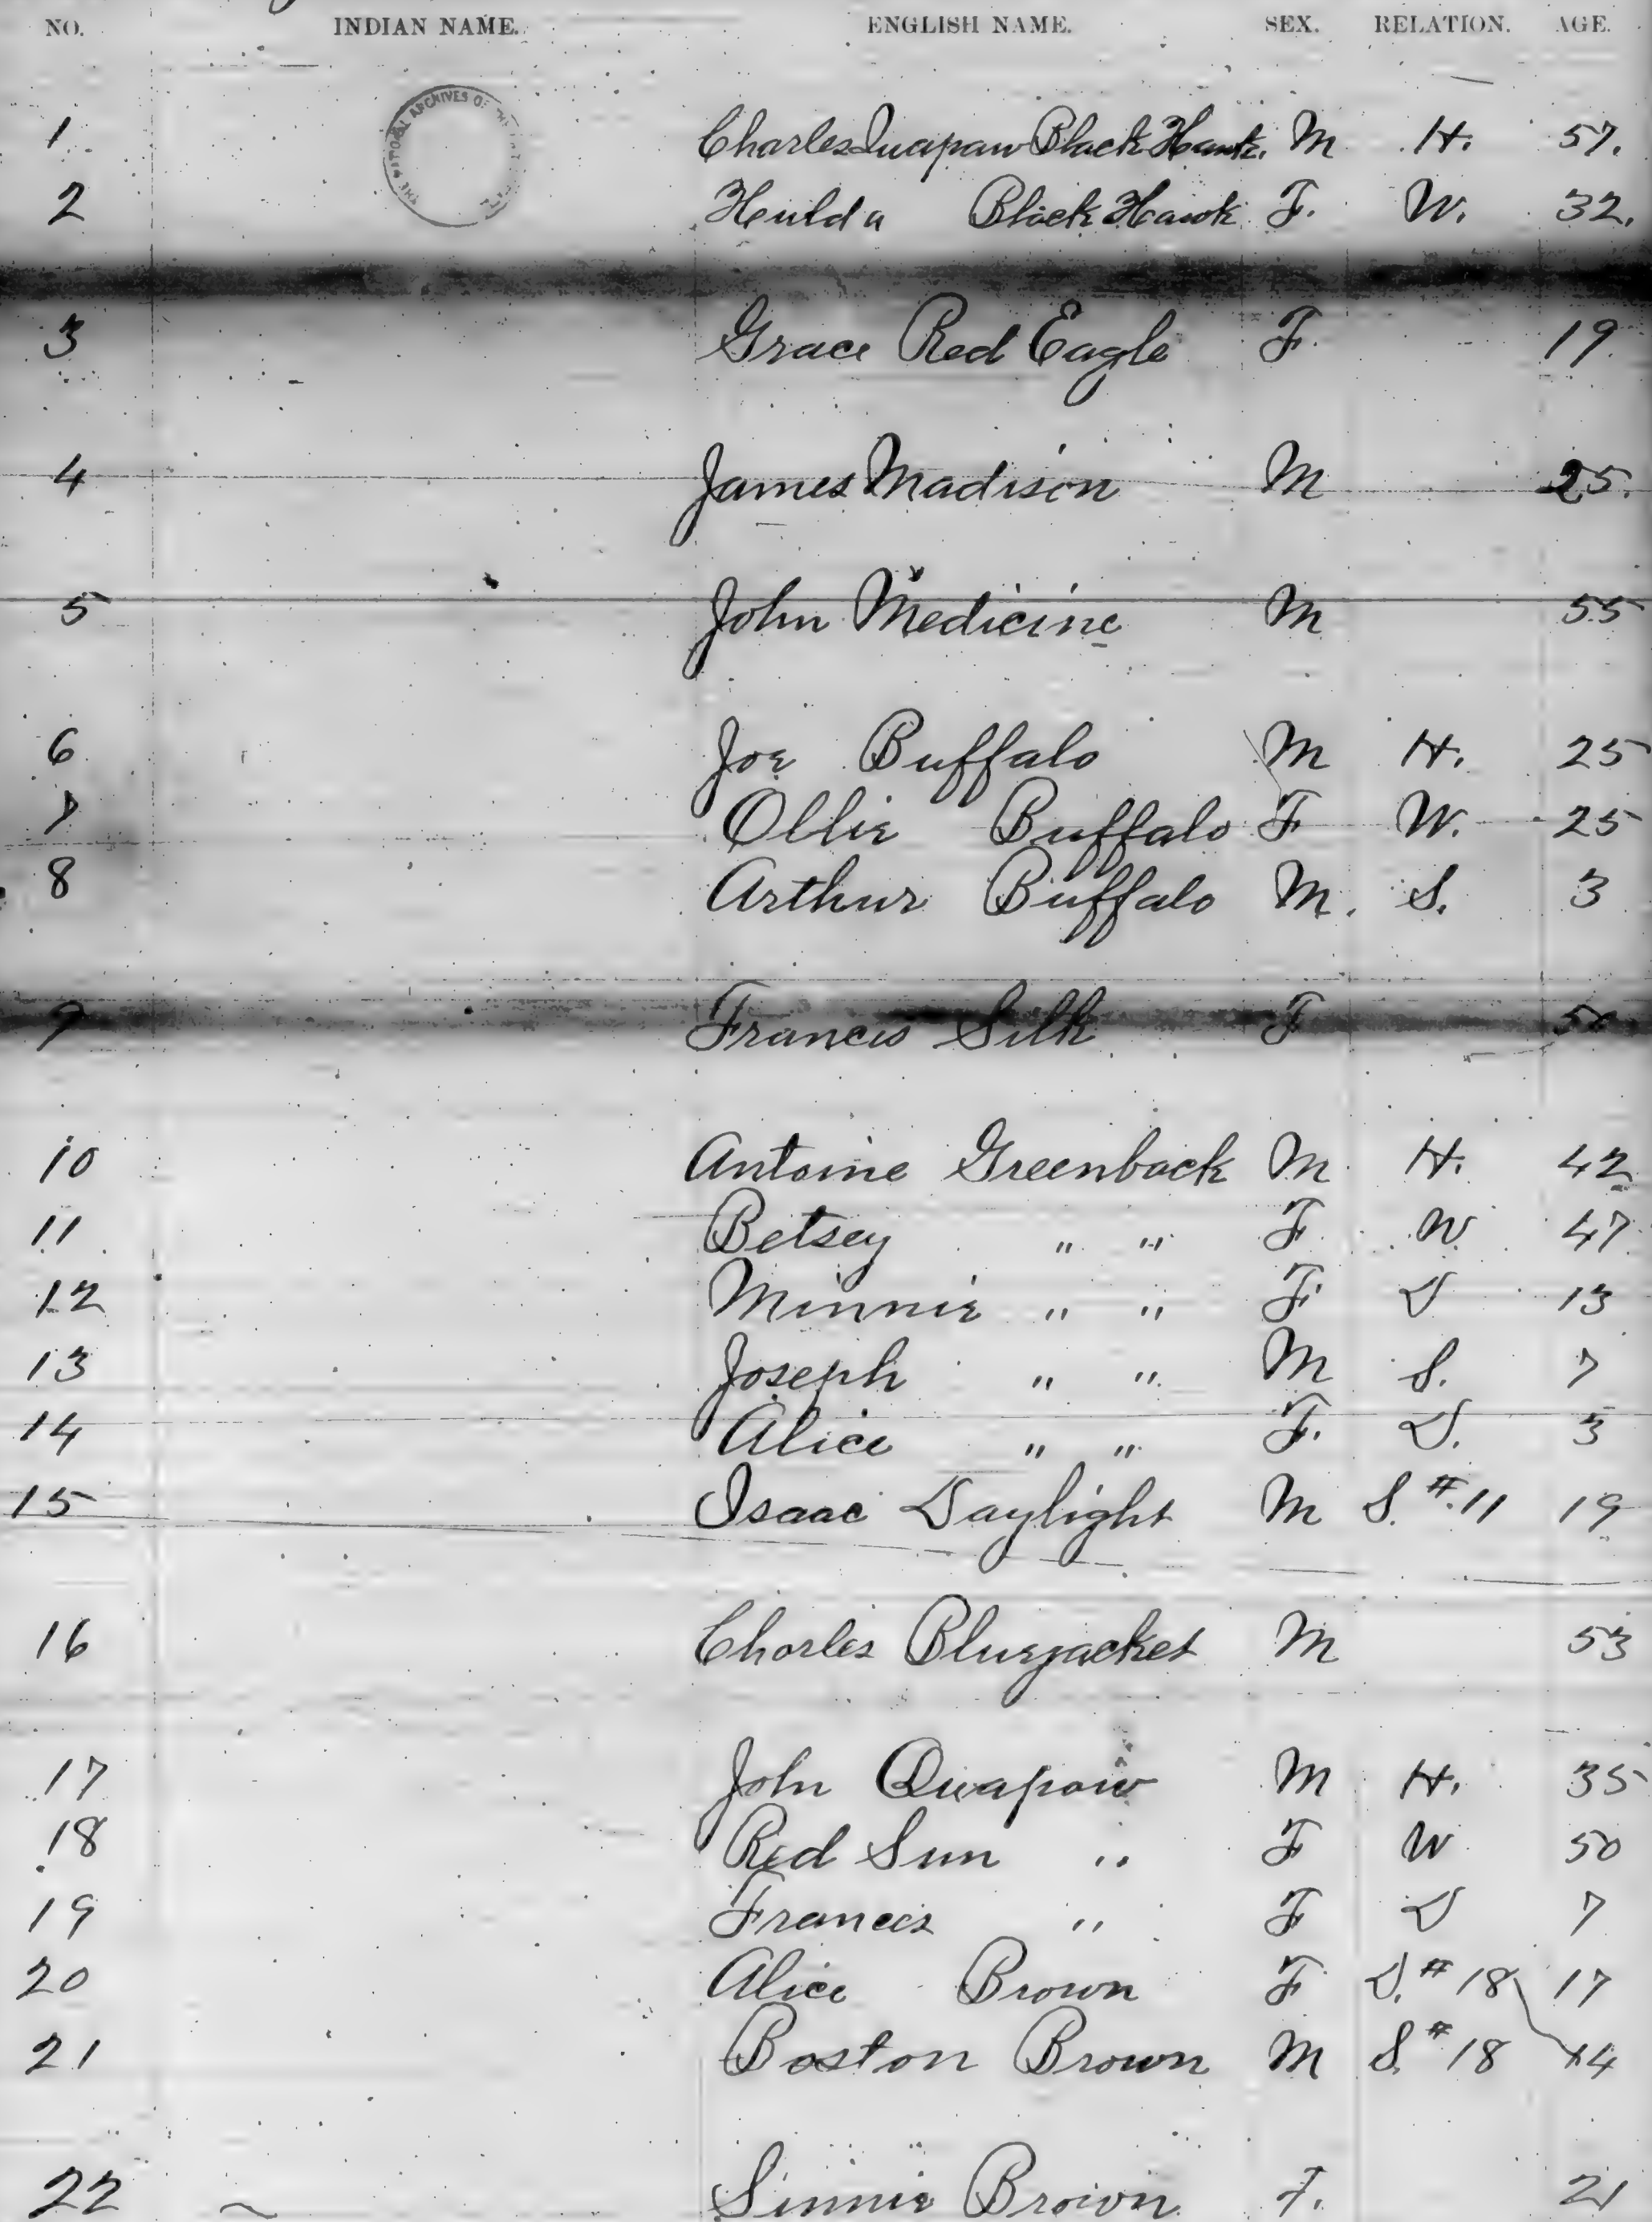 NO. INDIAN NAME. ENGLISH NAME. SEX. RELATION. AGE.
THE NATIONAL ARCHIVES OF THE
1 Charles Quapaw Black Hawk. M H. 57.
2 Hulda Black Hawk F. W. 32.
3 Grace Red Eagle F. 19
4 James Madison M 25.
5 John Medicine M 55
6 Joe Buffalo M H. 25
7 Ollie Buffalo F W. 25
8 Arthur Buffalo M. S. 3
9 Francis Silk F
10 Antoine Greenback M H. 42
11 Betsey " " F W 47
12 Minnie " " F D 13
13 Joseph " " M S. 7
14 Alice " " F. D. 3
15 Isaac Daylight M S. #11 19
16 Charles Bluejacket M 53
17 John Quapaw M H. 35
18 Red Sun " F W 50
19 Frances " F D 7
20 Alice Brown F D. #18 17
21 Boston Brown M S. #18 14
22 Sinnie Brown F. 21